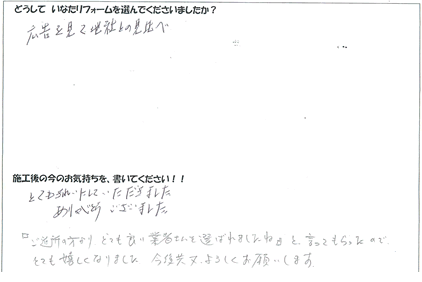 どうして いなたリフォームを選んでくださいましたか？
広告を見て他社との見比べ
施工後の今のお気持ちを、書いてください！！
とてもきれいにしていただきました
ありがとう ございました。
ご近所の方より とても良い業者さんを選ばれましたねと、言ってもらったので
とても嬉しくなりました 今後共又よろしくお願いします